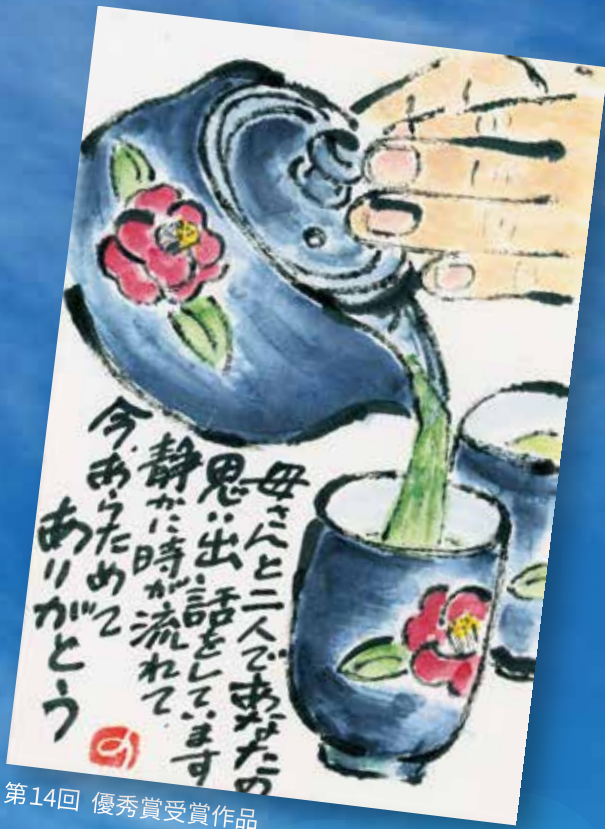 母さんと二人であなたの
思い出話をしています
静かに時が流れて
今、あらためて
ありがとう
の
第14回 優秀賞受賞作品